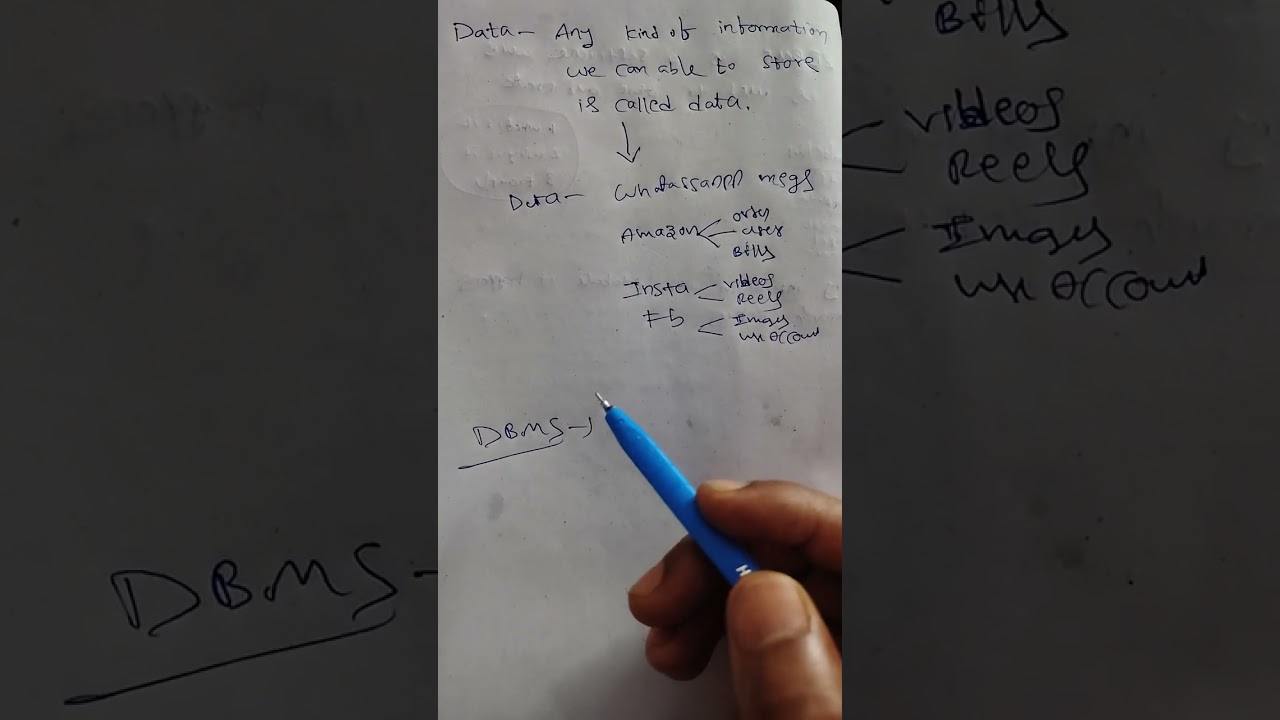 Data - Any kind of information
we can able to store
is called data.
↓
Data - Whatassapp msgs
Amazon
user
Bills
Insta
videos
Reels
Fb
Images
use account
DBMS →